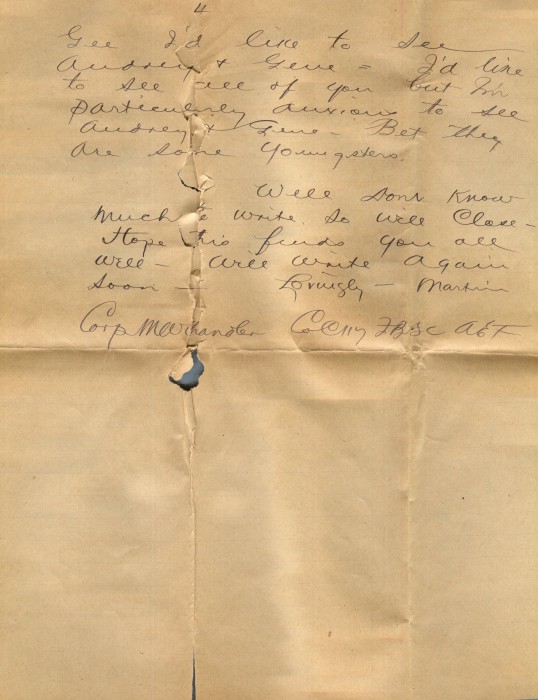 4
Gee I'd like to see
Audrey & Gene = I'd like
to see all of you but I'm
particularly anxious to see
Audrey & Gene - Bet they
are some youngsters.
Well dont know
much to write so will close -
Hope this finds you all
well - will write again
soon - Lovingly - Martin
Corp M W Chandler Co C 117 F B SC AEF